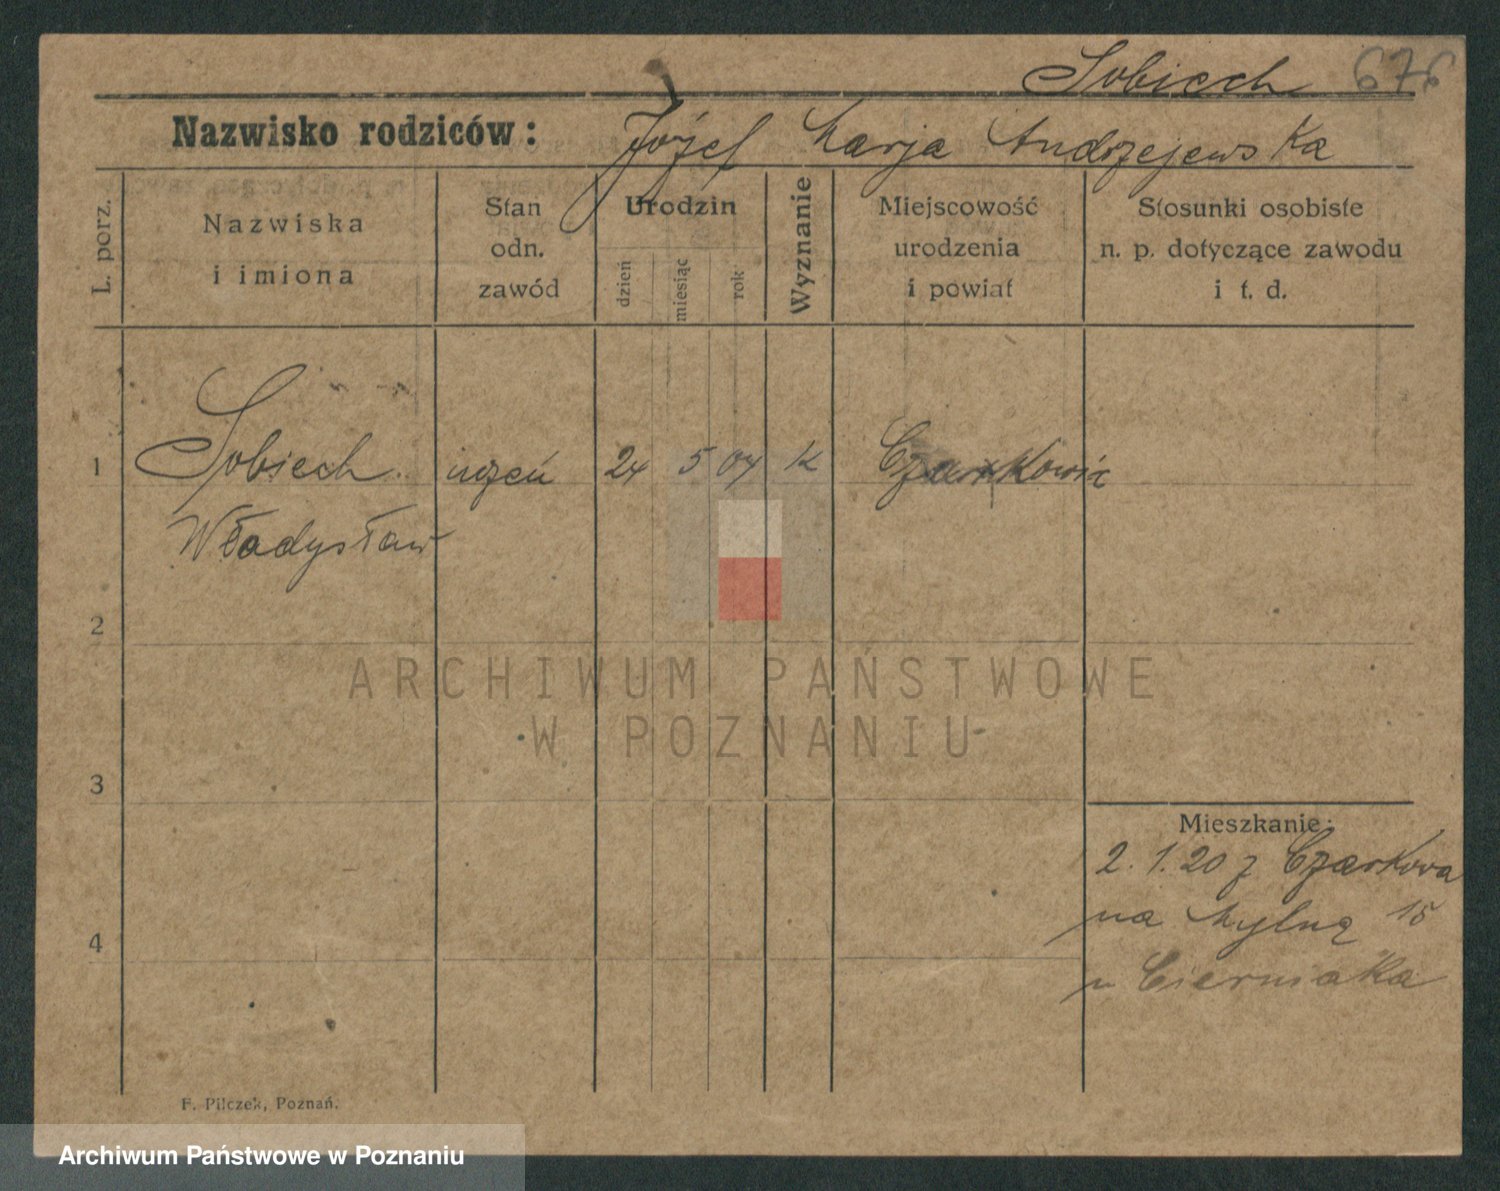 Sobiech 676
Nazwisko rodziców: Józef Marja Andrzejewska
L. porz.
Nazwiska
i imiona
Stan
odn.
zawód
Urodzin
dzień
miesiąc
rok
Wyznanie
Miejscowość
urodzenia
i powiat
Stosunki osobiste
n. p. dotyczące zawodu
i t. d.
1 Sobiech uczeń 24 5 04 K
Władysław
2
3
4
Mieszkanie:
2.1.20 z Czarkowa
na Mylną 15
u Cierniaka
F. Pilczek, Poznań.
ARCHIWUM PAŃSTWOWE
W POZNANIU
Archiwum Państwowe w Poznaniu